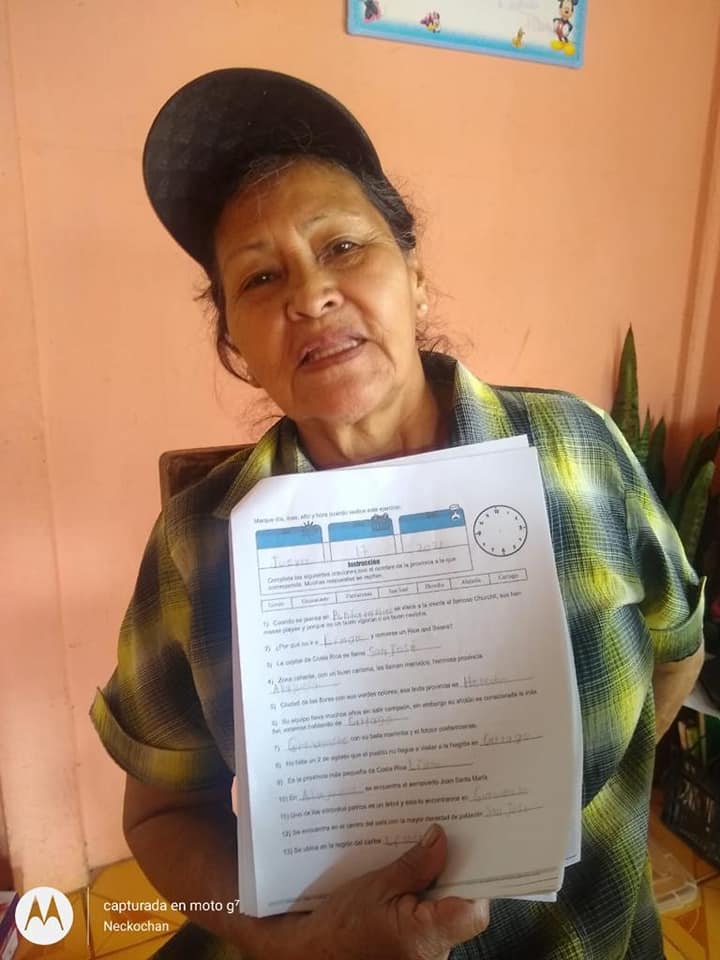 Marque día, mes, año y hora cuando realice este ejercicio.
Jueves 17 2021
Instrucción
Complete las siguientes oraciones con el nombre de la provincia a la que
corresponda. Muchas respuestas se repiten.
Limón Guanacaste Puntarenas San José Heredia Alajuela Cartago
1) Cuando se piensa en Puntarenas se viene a la mente el famoso Churchil, sus her-
mosas playas y porque no un buen vigorón o un buen ceviche.
2) ¿Por qué no ir a Limon y comerse un Rice and Beans?
3) La capital de Costa Rica es llama San Jose
4) Zona caliente, con un buen carisma, les llaman manudos, hermosa provincia.
Alajuela
5) Ciudad de las flores con sus verdes colores, esa linda provincia es Heredia
6) Su equipo lleva muchos años sin salir campeón, sin embargo su afición es considerada la más
fiel, estamos hablando de Cartago
7) con su baile marimba y el folclor costarricense.
8) No falta un 2 de agosto que el pueblo no llegue a visitar a la Negrita en Cartago
9) En la provincia más pequeña de Costa Rica
10) En Alajuela se encuentra el aeropuerto Juan Santa María.
11) Uno de los símbolos patrios es un árbol y este lo encontramos en
12) Se encuentra en el centro del país con la mayor densidad de población San José
13) Se ubica en la región del caribe
capturada en moto g⁷
Neckochan